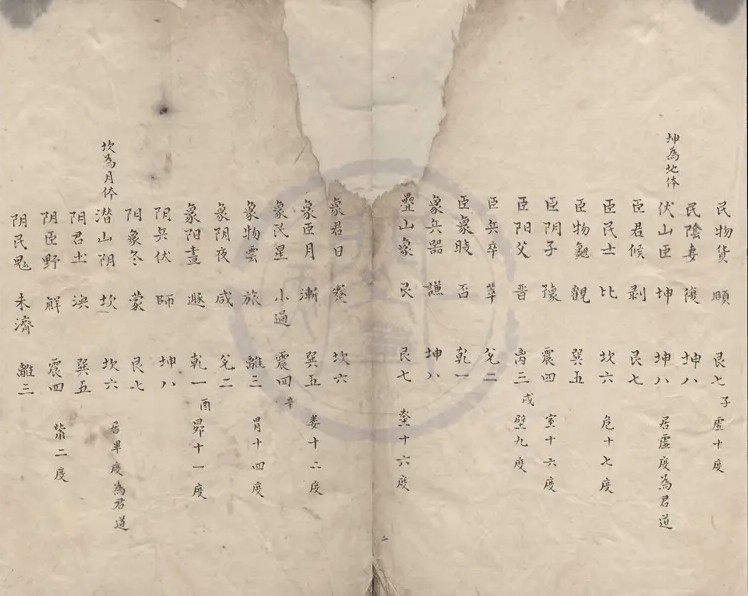 民物貨 頤 艮七 子 虛十度
民陰妻 復 坤八
坤為地体
伏山臣 坤 坤八 居虛度為君道
臣君候 剥 艮七
臣民士 比 坎六 危十七度
臣物龜 觀 巽五
臣阴子 豫 震四 室十六度
臣阳父 晋 离三 戌 壁九度
臣兵卒 萃 兑二
臣象時 否 乾一
象兵器 謙 坤八
疊山象 艮 艮七 奎十六度
二
象君日 蹇 坎六
象臣月 漸 巽五 婁十二度
象民星 小過 震四 辛
象物雲 旅 離三 胃十四度
象阴夜 咸 兑二
象阳晝 遯 乾一 酉 昴十一度
阴兵伏 師 坤八
阴象冬 蒙 艮七
坎為月体
潜山阴 坎 坎六 居畢度為君道
阴君土 渙 巽五
阴臣野 解 震四 觜二度
阴民鬼 未濟 離三